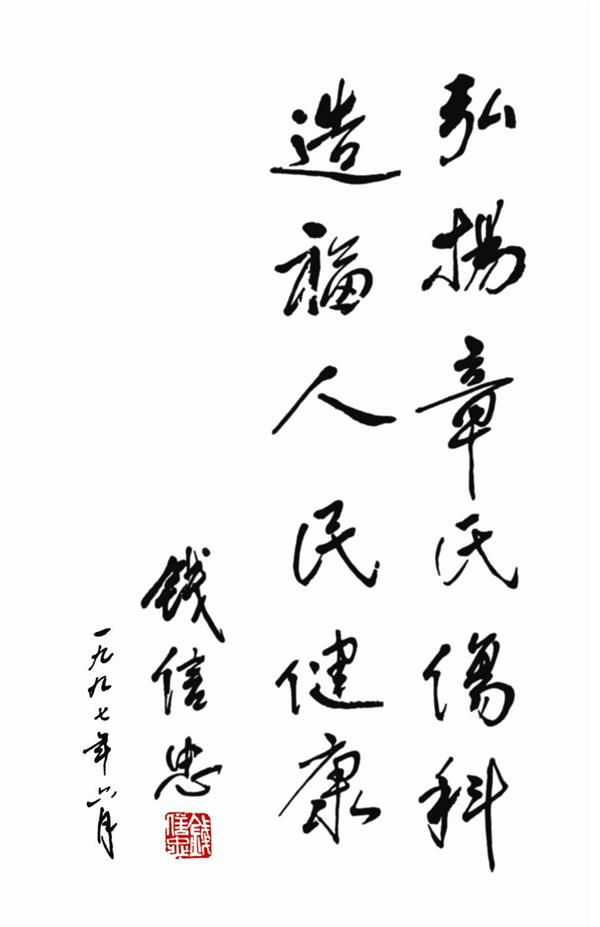 弘揚章氏傷科
造福人民健康
钱信忠
一九九七年六月
錢信忠